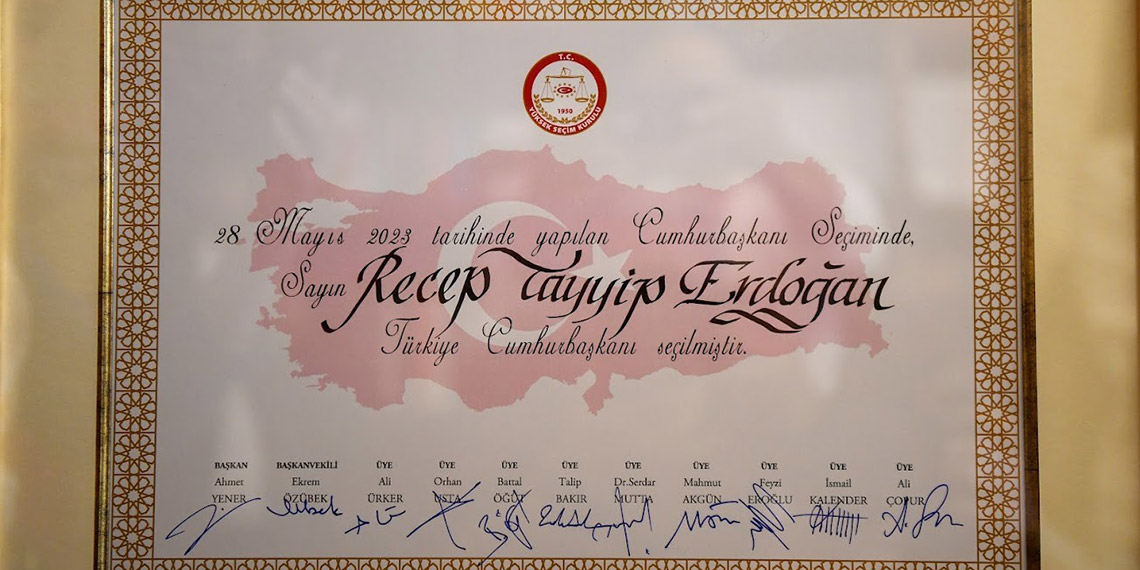 T.C.
1950
YÜKSEK SEÇİM KURULU
28 Mayıs 2023 tarihinde yapılan Cumhurbaşkanı Seçiminde,
Sayın Recep Tayyip Erdoğan
Türkiye Cumhurbaşkanı seçilmiştir.
BAŞKAN BAŞKANVEKİLİ ÜYE ÜYE ÜYE ÜYE ÜYE ÜYE ÜYE ÜYE ÜYE
Ahmet Ekrem Ali Orhan Battal Talip Dr.Serdar Mahmut Feyzi İsmail Ali
YENER ÖZÜBEK ÜRKER USTA ÖĞÜT BAKIR MUTTA AKGÜN EROĞLU KALENDER ÇOPUR